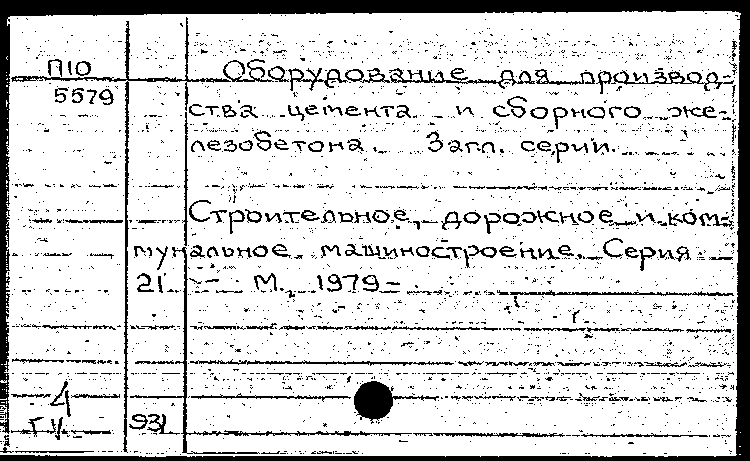 П10
5579
Оборудование для производ-
ства цемента и сборного же-
лезобетона. Загл. серии.
Строительное, дорожное и ком-
мунальное машиностроение. Серия
21 -- М., 1979-
4
931